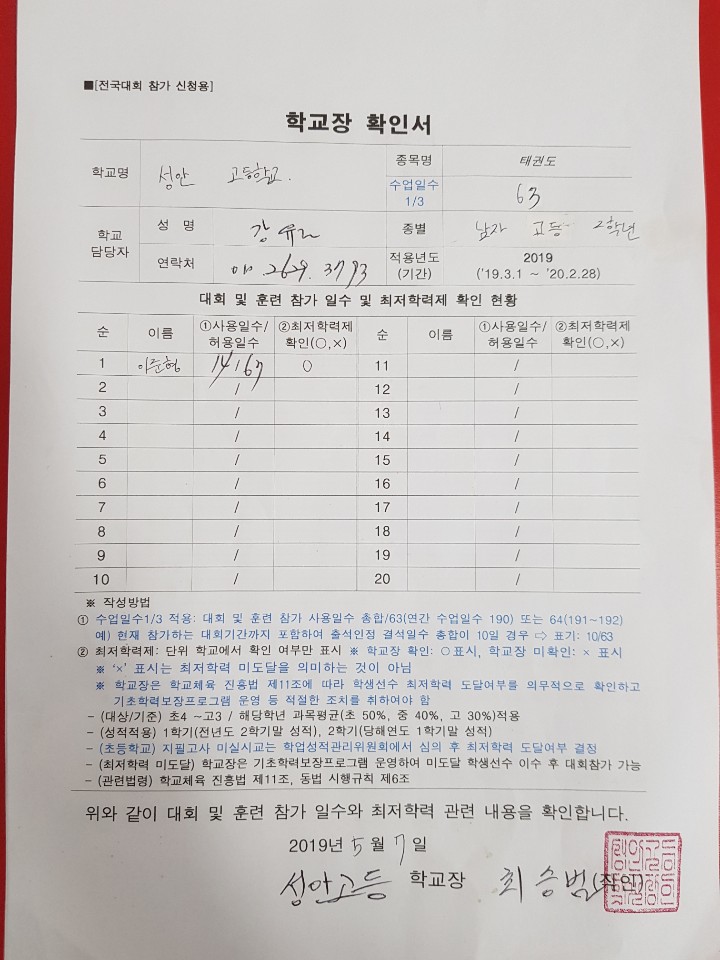 ■[전국대회 참가 신청용]
학교장 확인서
학교명 성안 고등학교. 종목명 태권도
수업일수 1/3 63
학교 담당자 성 명 강유 종별 남자 고등 2학년
연락처 2629. 3793 적용년도 (기간) 2019 ('19.3.1 ~ '20.2.28)
대회 및 훈련 참가 일수 및 최저학력제 확인 현황
순 이름 ①사용일수/허용일수 ②최저학력제 확인(○,×) 순 이름 ①사용일수/허용일수 ②최저학력제 확인(○,×)
1 이준형 14/63 ○ 11 /
2 / 12 /
3 / 13 /
4 / 14 /
5 / 15 /
6 / 16 /
7 / 17 /
8 / 18 /
9 / 19 /
10 / 20 /
※ 작성방법
① 수업일수1/3 적용: 대회 및 훈련 참가 사용일수 총합/63(연간 수업일수 190) 또는 64(191~192)
예) 현재 참가하는 대회기간까지 포함하여 출석인정 결석일수 총합이 10일 경우 ⇨ 표기: 10/63
② 최저학력제: 단위 학교에서 확인 여부만 표시 ※ 학교장 확인: ○표시, 학교장 미확인: × 표시
※ '×' 표시는 최저학력 미도달을 의미하는 것이 아님
※ 학교장은 학교체육 진흥법 제11조에 따라 학생선수 최저학력 도달여부를 의무적으로 확인하고
기초학력보장프로그램 운영 등 적절한 조치를 취하여야 함
- (대상/기준) 초4 ~고3 / 해당학년 과목평균(초 50%, 중 40%, 고 30%)적용
- (성적적용) 1학기(전년도 2학기말 성적), 2학기(당해연도 1학기말 성적)
- (초등학교) 지필고사 미실시교는 학업성적관리위원회에서 심의 후 최저학력 도달여부 결정
- (최저학력 미도달) 학교장은 기초학력보장프로그램 운영하여 미도달 학생선수 이수 후 대회참가 가능
- (관련법령) 학교체육 진흥법 제11조, 동법 시행규칙 제6조
위와 같이 대회 및 훈련 참가 일수와 최저학력 관련 내용을 확인합니다.
2019년 5 월 7 일
성안고등 학교장 최승범 (직인)